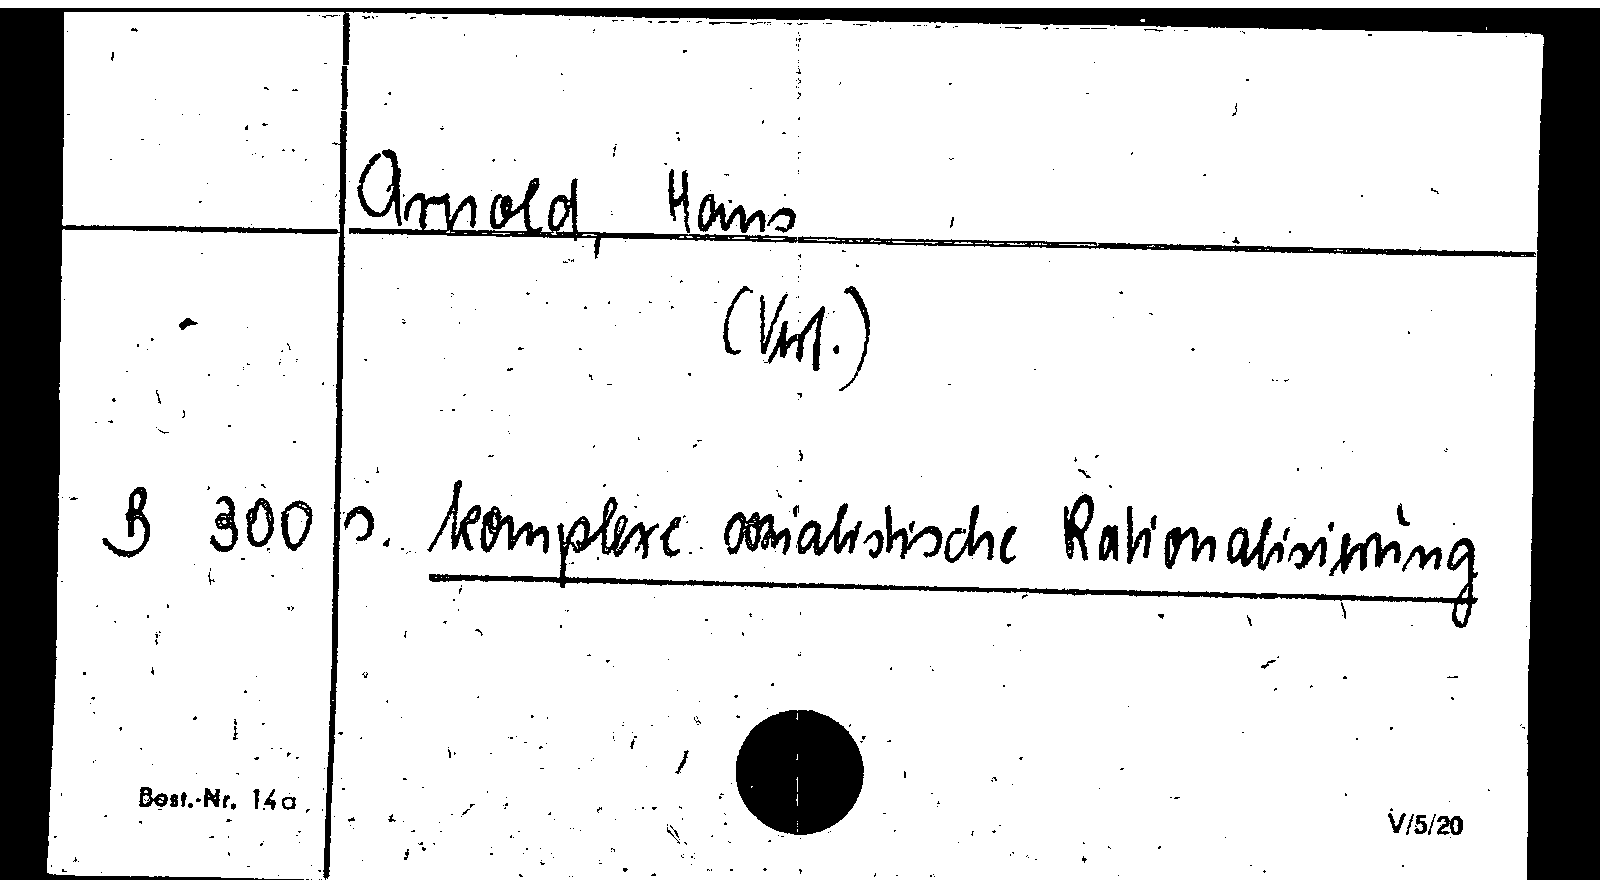 Arnold, Hans
(Verf.)
B 300 s. komplexe sozialistische Rationalisierung
Best.-Nr. 14a
V/5/20